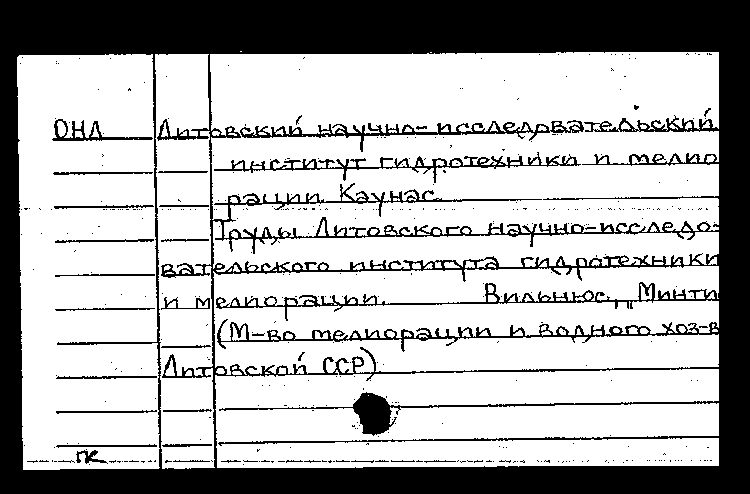 ОНД Литовский научно-исследовательский
институт гидротехники и мелио
рации Каунас.
Труды Литовского научно-исследо-
вательского института гидротехники
и мелиорации. Вильнюс, "Минти
(М-во мелиорации и водного хоз-в
Литовской ССР)
пк